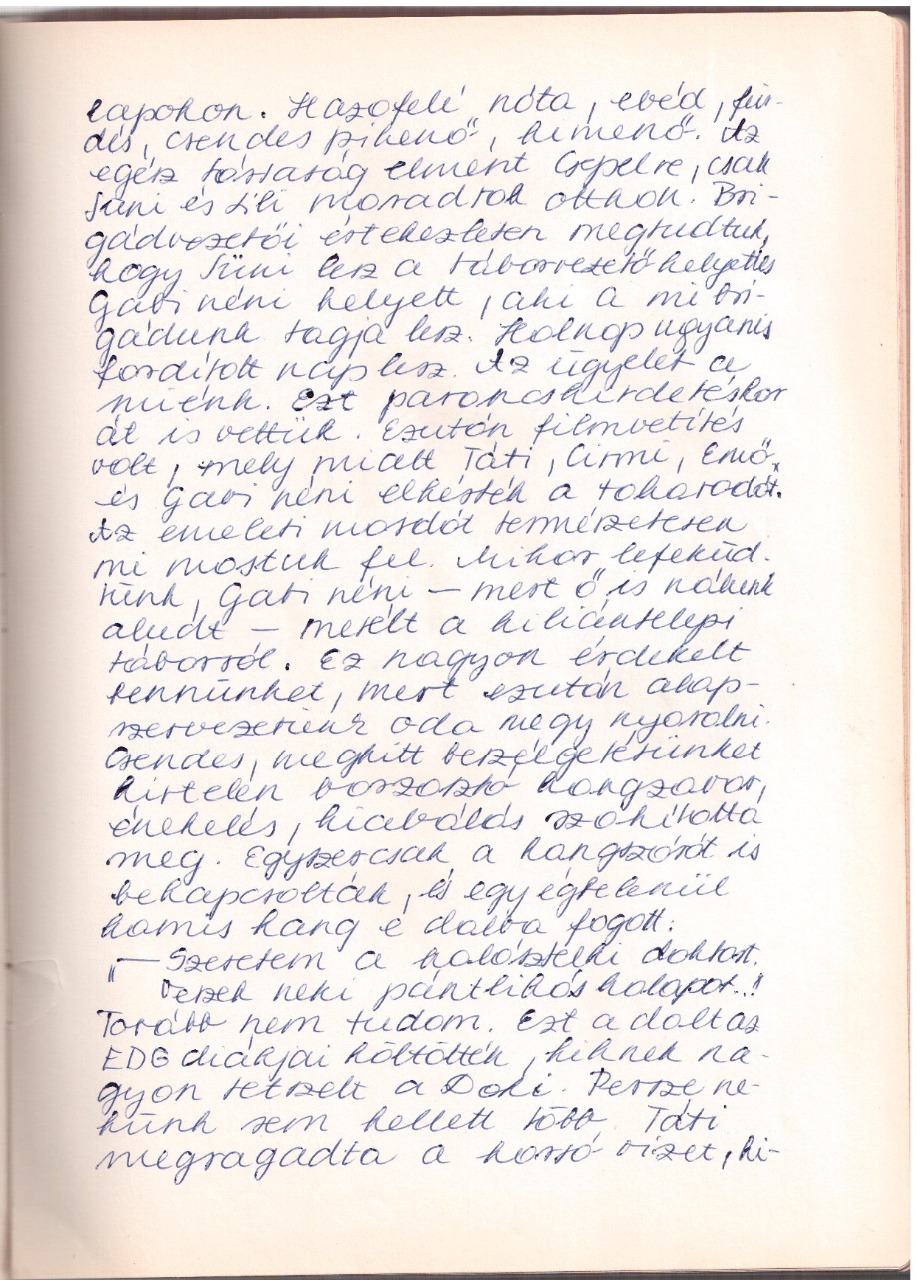 lapokon. Hazafelé nóta, ebéd, für-
dés, csendes pihenő, kimenő. Az
egész társaság elment Csepelre, csak
Süni és Lili maradtak otthon. Bri-
gádvezetői értekezleten megtudtuk,
hogy Süni lesz a táborvezető helyettes
Gabi néni helyett, aki a mi bri-
gádunk tagja lesz. Holnap ugyanis
fordított nap lesz. Az ügyelet a
miénk. Ezt parancshirdetéskor
át is vettük. Ezután filmvetítés
volt, mely miatt Táti, Cirmi, Emő,
és Gabi néni elkésték a takarodót.
Az emeleti mosdót természetesen
mi mostuk fel. Mikor lefeküd-
tünk, Gabi néni – mert ő is nálunk
aludt – mesélt a kiliántelepi
táborról. Ez nagyon érdekelt
bennünket, mert ezután alap-
szervezetünk oda megy nyaralni.
Csendes, meghitt beszélgetésünket
hirtelen borzasztó hangzavar,
éneklés, kiabálás szakította
meg. Egyszercsak a hangszórót is
bekapcsolták, és egy égtelenül
hamis hang e dalba fogott:
„– Szeretem a halásztelki doktort.
Veszek neki pántlikás kalapot..!
Tovább nem tudom. Ezt a dalt az
EDG diákjai költötték, kiknek na-
gyon tetszett a Doki. Persze ne-
künk sem kellett több. Táti
megragadta a korsó vizet, ki-